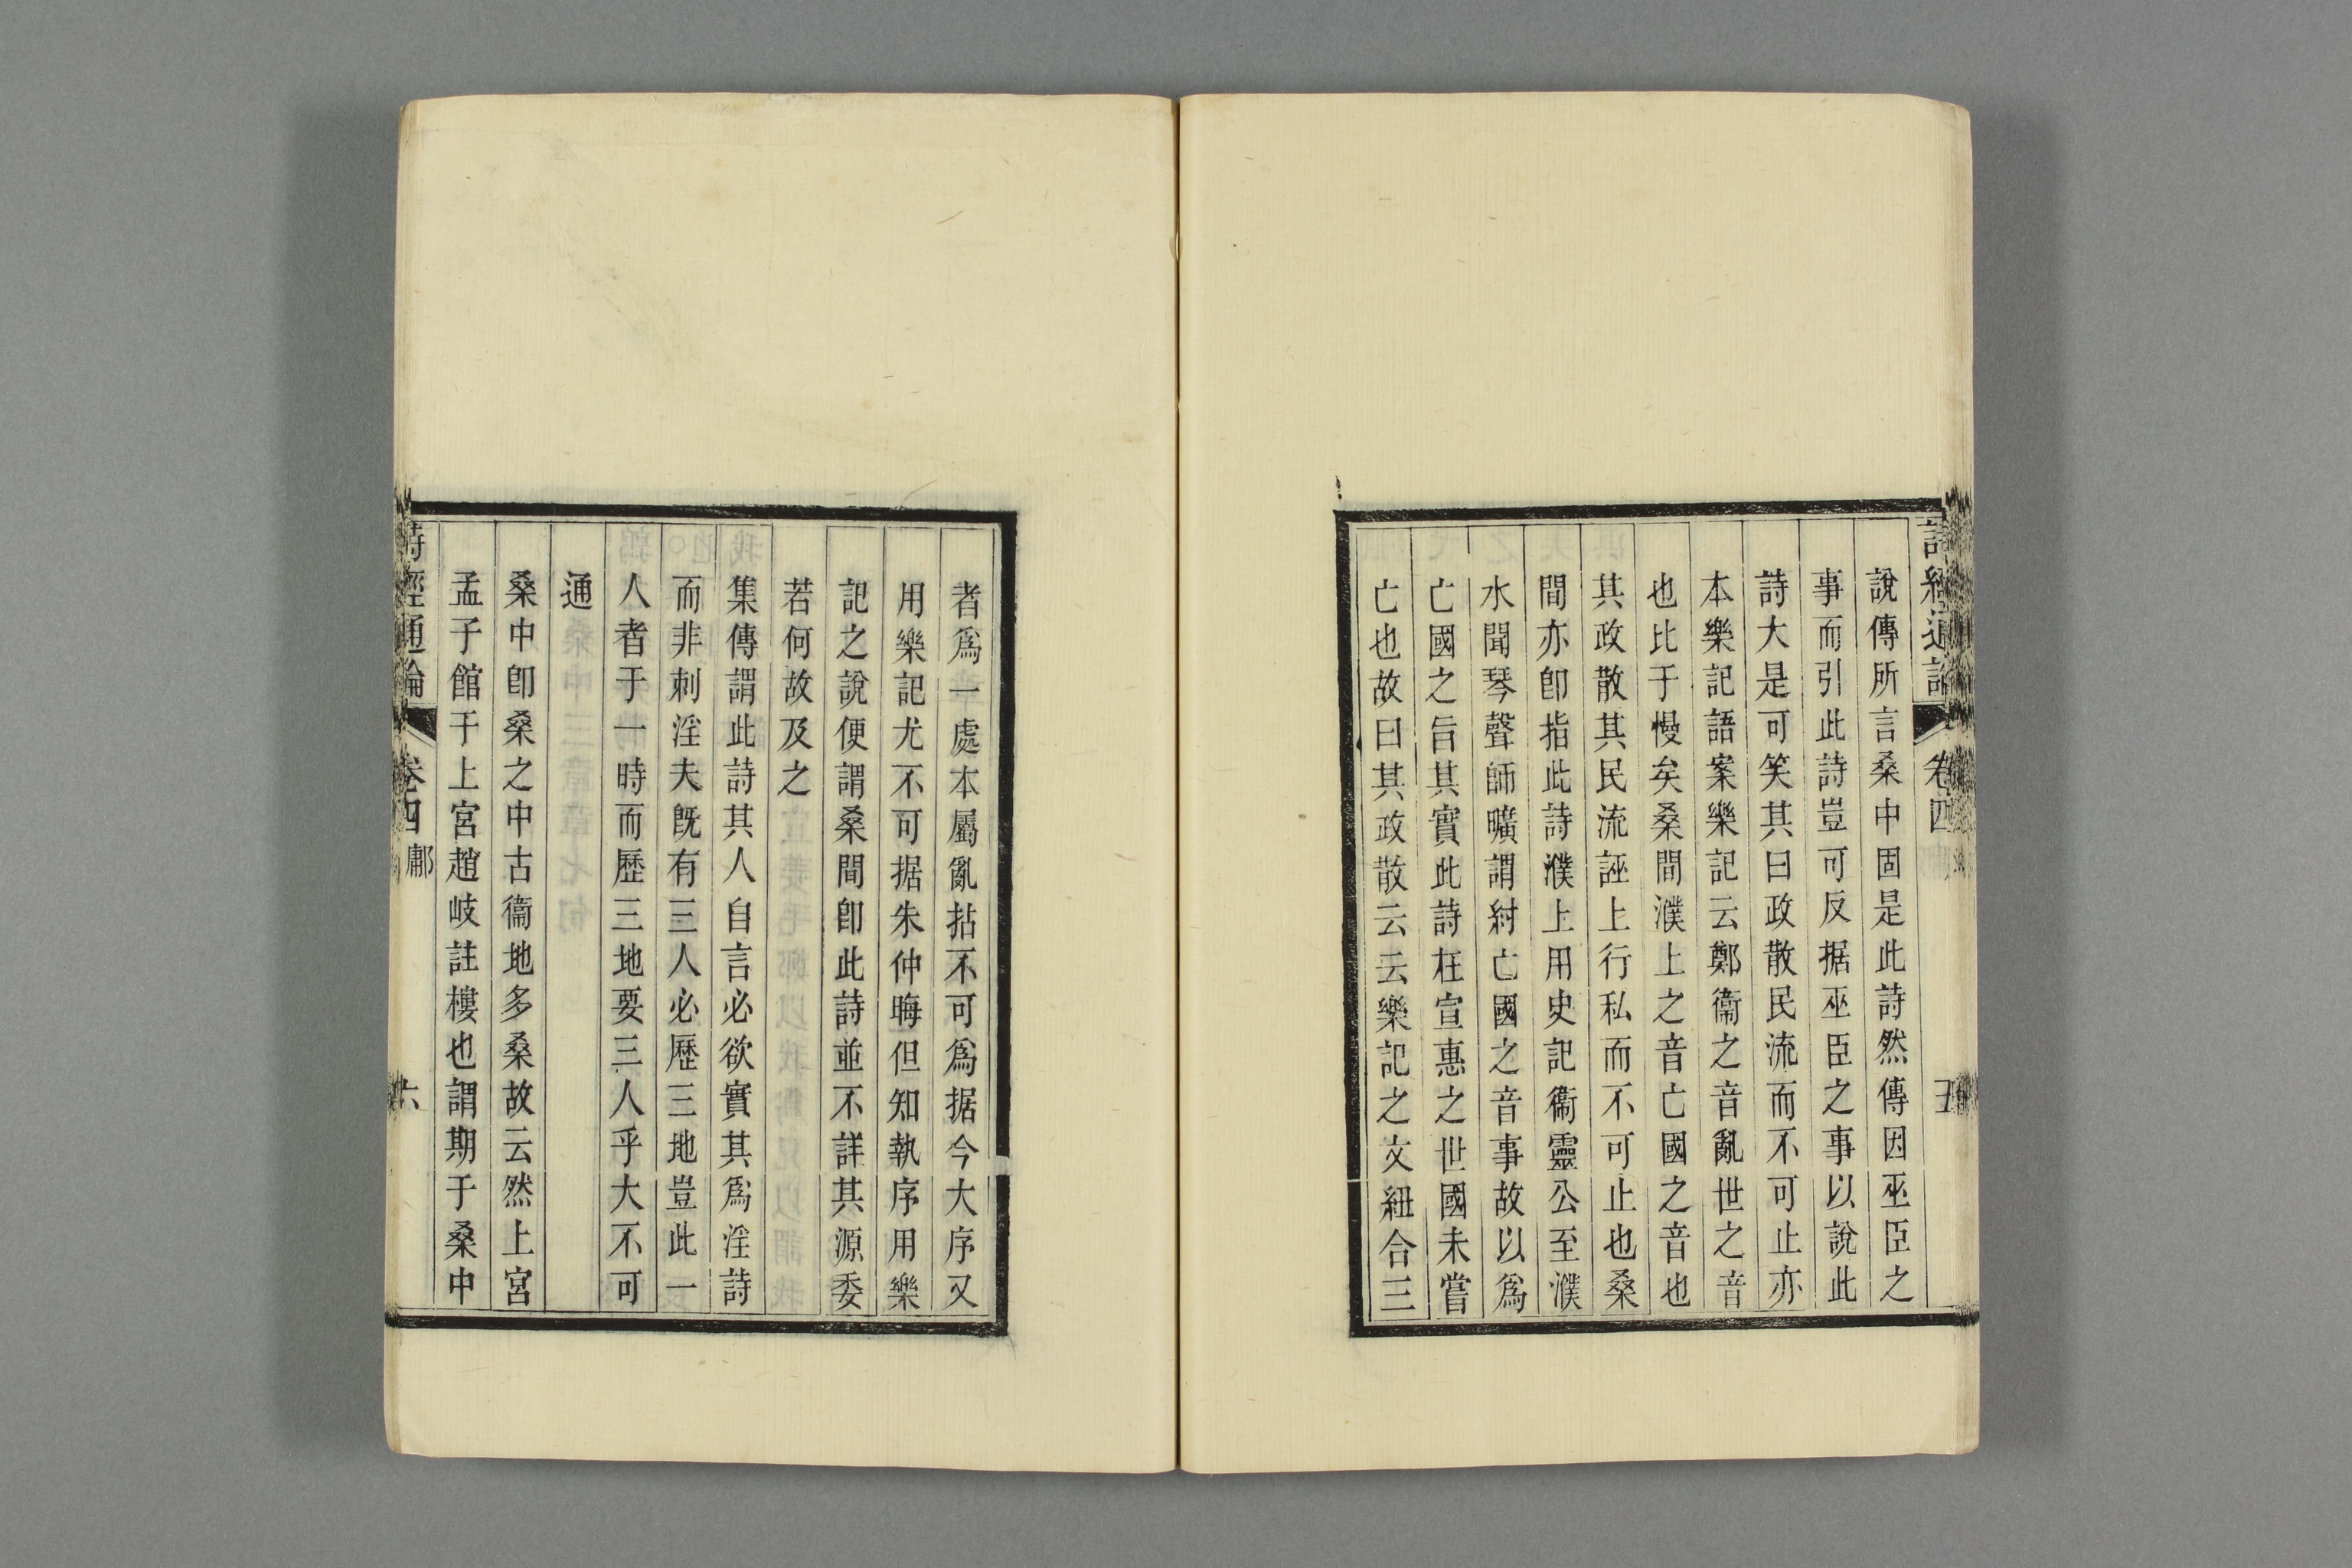 詩經通論
卷四
五
說傳所言桑中固是此詩然傳因巫臣之
事而引此詩豈可反据巫臣之事以說此
詩大是可笑其曰政散民流而不可止亦
本樂記語案樂記云鄭衞之音亂世之音
也比于慢矣桑間濮上之音亡國之音也
其政散其民流誣上行私而不可止也桑
間亦卽指此詩濮上用史記衞靈公至濮
水聞琴聲師曠謂紂亡國之音事故以爲
亡國之旨其實此詩在宣惠之世國未嘗
亡也故曰其政散云云樂記之文紐合三
者爲一處本屬亂拈不可爲据今大序又
用樂記尤不可据朱仲晦但知執序用樂
記之說便謂桑間卽此詩並不詳其源委
若何故及之
集傳謂此詩其人自言必欲實其爲淫詩
而非刺淫夫旣有三人必歷三地豈此一
人者于一時而歷三地要三人乎大不可
通
桑中卽桑之中古衞地多桑故云然上宮
孟子館于上宮趙岐註樓也謂期于桑中
詩經通論
卷四
鄘
六